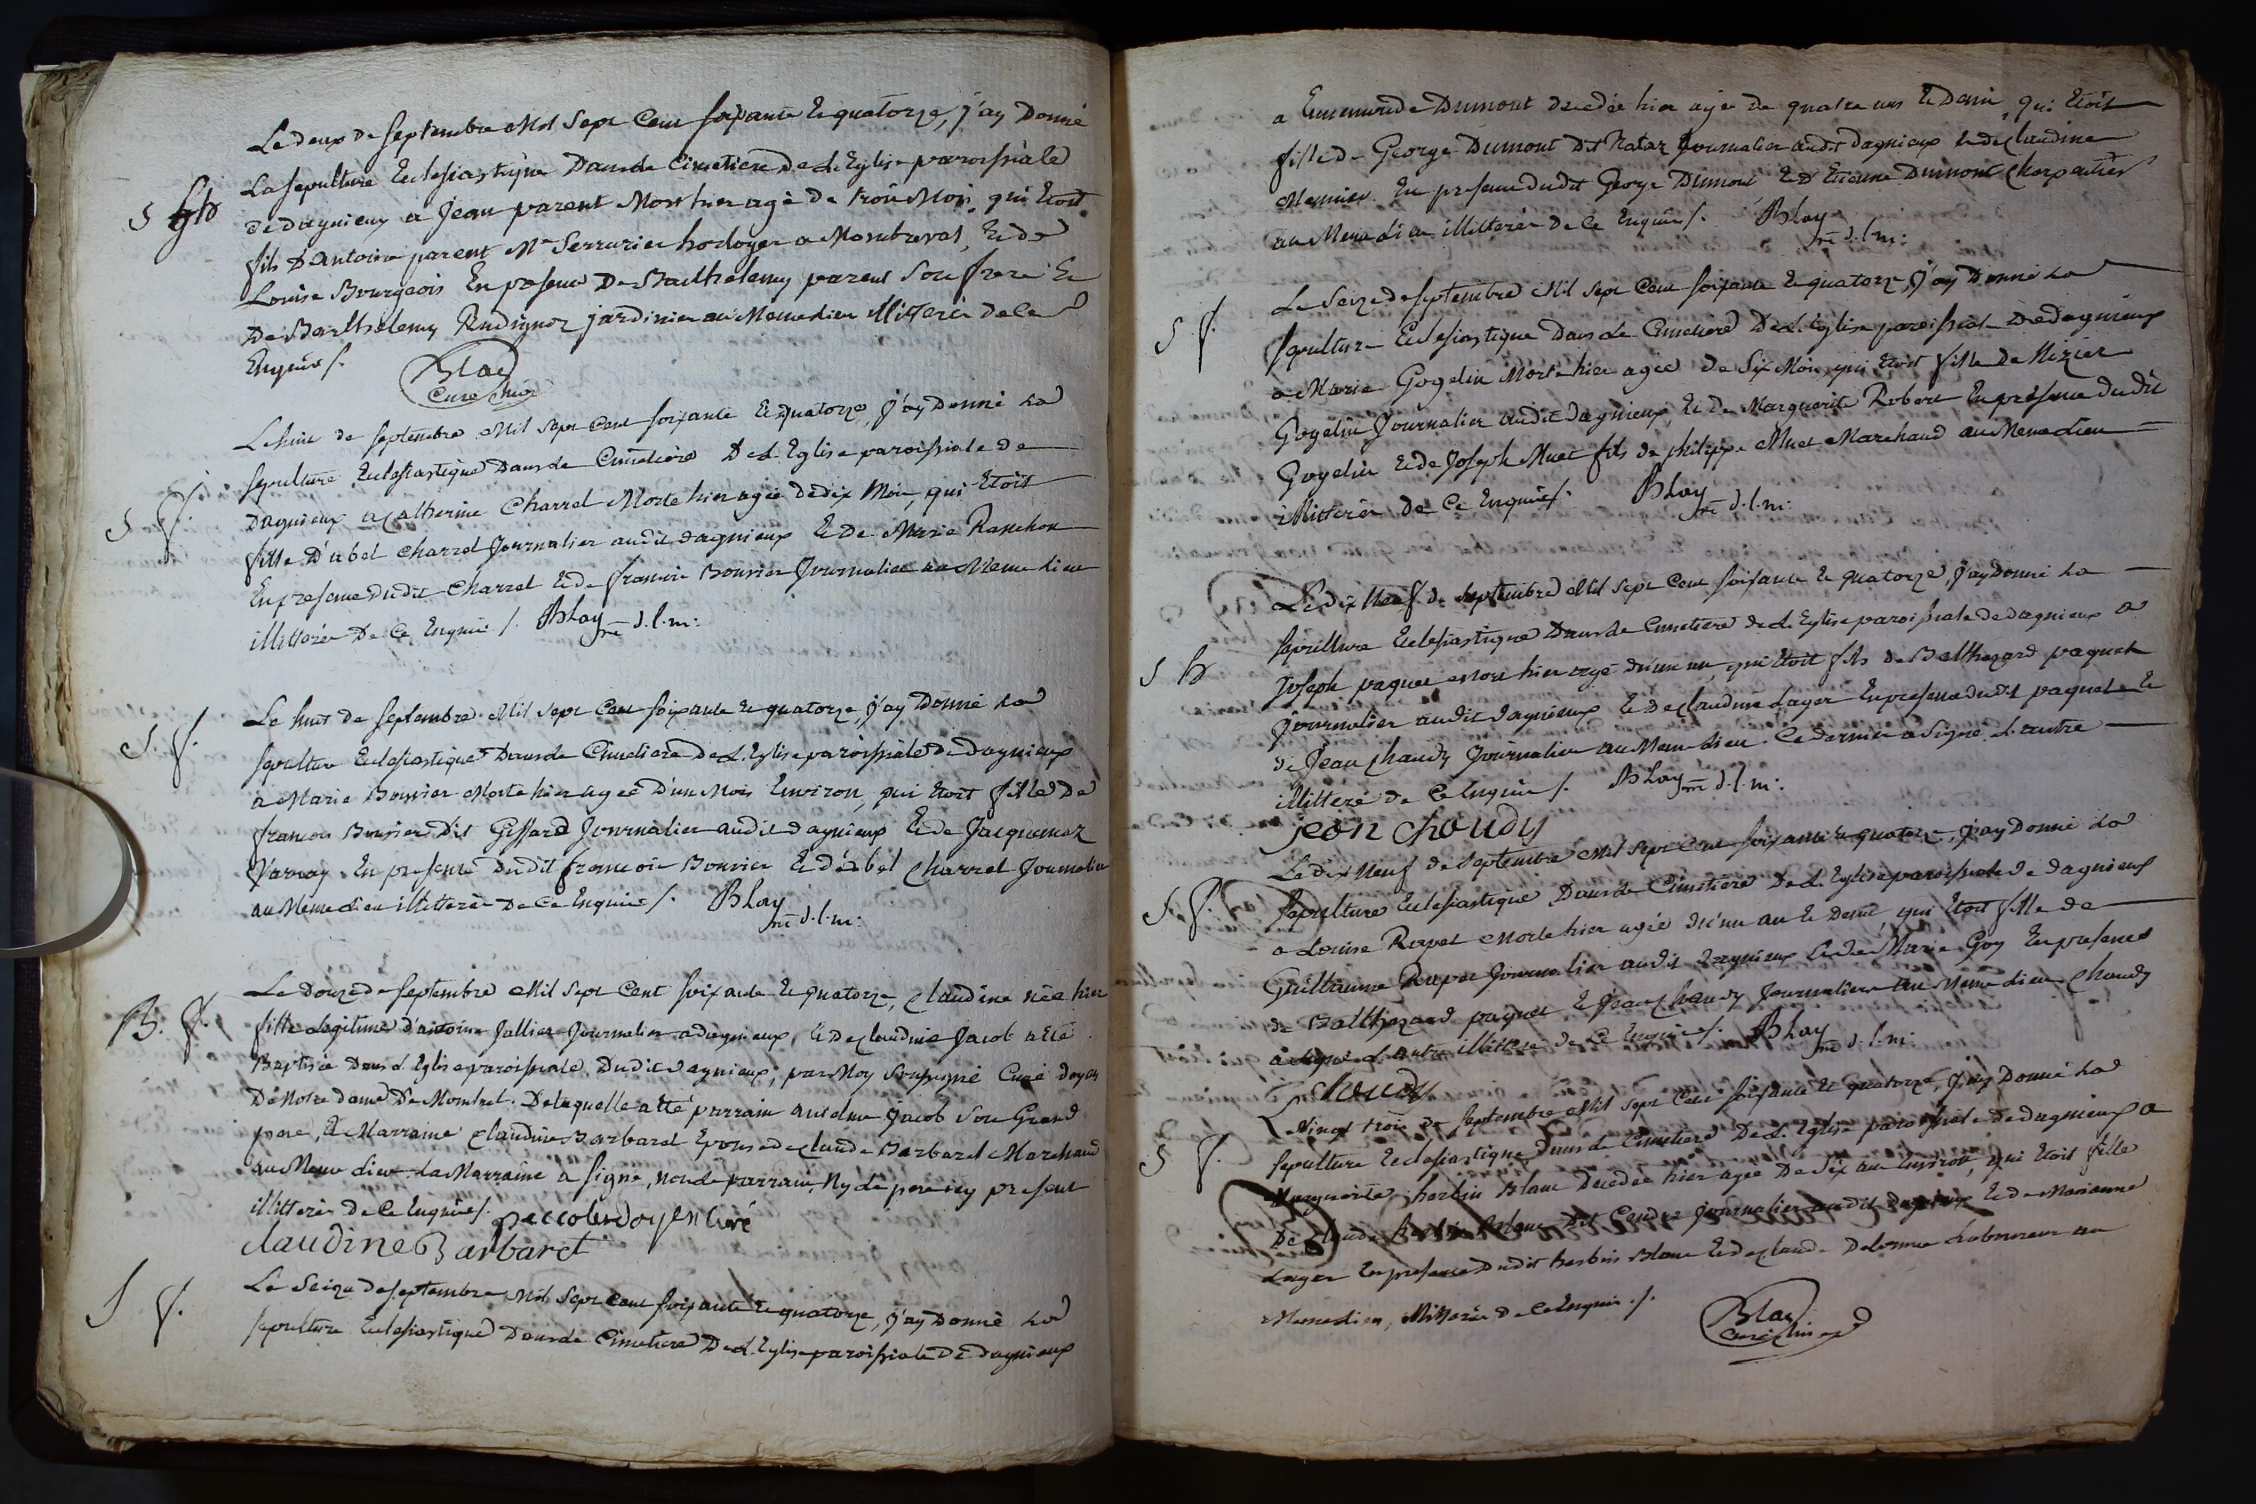 Le deux de septembre Mil Sept Cent soixante Et quatorze, j'ay Donné
La sepulture Ecclesiastique Dans le Cimetiere De L'Eglise paroissiale
S
de dagnieux a Jean parent Mort hier agé de trois Mois, qui Etoit
fils D'antoine parent Me Serrurier horloger a Montrevel, Et de
Louise Bourgeois En presence De Barthelemy parent Son frere Et
De Barthelemy jardinier au Meme lieu illitteré de Ce
Enquis /.
Blay
Curé
Le huit de septembre Mil Sept Cent soixante Et quatorze, j'ay Donné La
sepulture Ecclesiastique Dans le Cimetiere De L'Eglise paroissiale de
S f.
Dagnieux a Catherine Charrel Morte hier agée de dix Mois, qui Etoit
fille D'abel Charrel Journalier audit dagnieux Et De Marie Ranchon
En presence dudit Charrel Et de francois Bouvier Journalier au Meme lieu
illitterés De Ce Enquis /. Blay d.l.m:
Le huit de septembre Mil Sept Cent soixante Et quatorze, j'ay Donné La
S. f.
sepulture Ecclesiastique Dans le Cimetiere De L'Eglise paroissiale de dagnieux
a Marie Bouvier Morte hier agée D'un Mois Environ, qui Etoit fille De
francois Bouvier Dit Giffard Journalier audit dagnieux Et de Jacquemaz
Varray En presence Dudit francois Bouvier Et d'abel Charrel Journalier
au Meme lieu illitterés De Ce Enquis /. Blay d.l.m:
Le Douze de septembre Mil Sept Cent soixante Et quatorze, Claudine née hier
B. f.
fille Legitime d'antoine Jallier Journalier a dagnieux, Et de Claudine Jacob a Eté
Baptisée Dans L'Eglise paroissiale Dudit dagnieux, par Moy Soussigné Curé doyen
De Notre dame De Montluel. De laquelle a Eté parrain anselme Jacob Son Grand
pere, Et Marraine Claudine Barbaret Epouse de Claude Barbaret Marchand
au Meme lieu La Marraine a Signé, Non le parrain, Ny le pere icy present
illitterés de Ce Enquis /. doyen Curé
claudine Barbaret
Le Seize de septembre Mil Sept Cent soixante Et quatorze, j'ay Donné La
S f.
sepulture Ecclesiastique Dans le Cimetiere De L'Eglise paroissiale De dagnieux
a Dumont decedée hier agée de quatre ans Et Demi, qui Etoit
fille De George Dumont Dit Natar Journalier audit dagnieux Et de Claudine
Meunier En presence dudit George Dumont Et D'Etienne Dumont Charpentier
au Meme lieu illitterés de Ce Enquis /. Blay d.l.m:
Le Seize de septembre Mil Sept Cent soixante Et quatorze, j'ay Donné La
S f.
sepulture Ecclesiastique Dans Le Cimetiere De L'Eglise paroissiale De dagnieux
a Marie Goyelin Morte hier agée de Six Mois, qui Etoit fille de Nizier
Goyelin Journalier audit dagnieux, Et De Marguerite Robert En presence dudit
Goyelin Et de Joseph Muet fils de philippe Muet Marchand au Meme lieu
illitterés De Ce Enquis /. Blay d.l.m:
Le dix Neuf de septembre Mil Sept Cent soixante Et quatorze, j'ay Donné La
sepulture Ecclesiastique Dans le Cimetiere de L'Eglise paroissiale de dagnieux a
S
Joseph paquet Mort hier agé d'un an, qui Etoit fils de Balthazard paquet
Journalier audit dagnieux Et de Claudine Lager En presence dudit paquet Et
de Jean Chaudy Journalier au Meme lieu. Ce dernier a Signé L'autre
illitteré de Ce Enquis /. Blay d.l.m:
jean choudy
Le dix Neuf de septembre Mil Sept Cent soixante Et quatorze, j'ay Donné La
S f.
sepulture Ecclesiastique Dans le Cimetiere De L'Eglise paroissiale de dagnieux
a Louise Rapet Morte hier agée d'un an Et Demi qui Etoit fille de
Guillaume Rapet Journalier audit dagnieux Et de Marie Goy En presence
de Balthazard paquet Et Jean Chaudy Journaliers au Meme lieu Chaudy
a Signé L'autre illitteré de Ce Enquis /. Blay d.l.m:
choudy
Le Vingt trois de septembre Mil Sept Cent soixante Et quatorze, j'ay Donné La
sepulture Ecclesiastique Dans le Cimetiere De L'Eglise paroissiale de dagnieux a
S f.
Marguerite herbin Blanc Decedée hier agée De Six ans Environ, qui Etoit fille
De Claude herbin Blanc Dit Cendre Journalier audit dagnieux Et de Marianne
Lager En presence Dudit herbin Blanc Et de Claude Delorme Laboureur au
Meme lieu, illitterés De Ce Enquis /.
Blay
curé